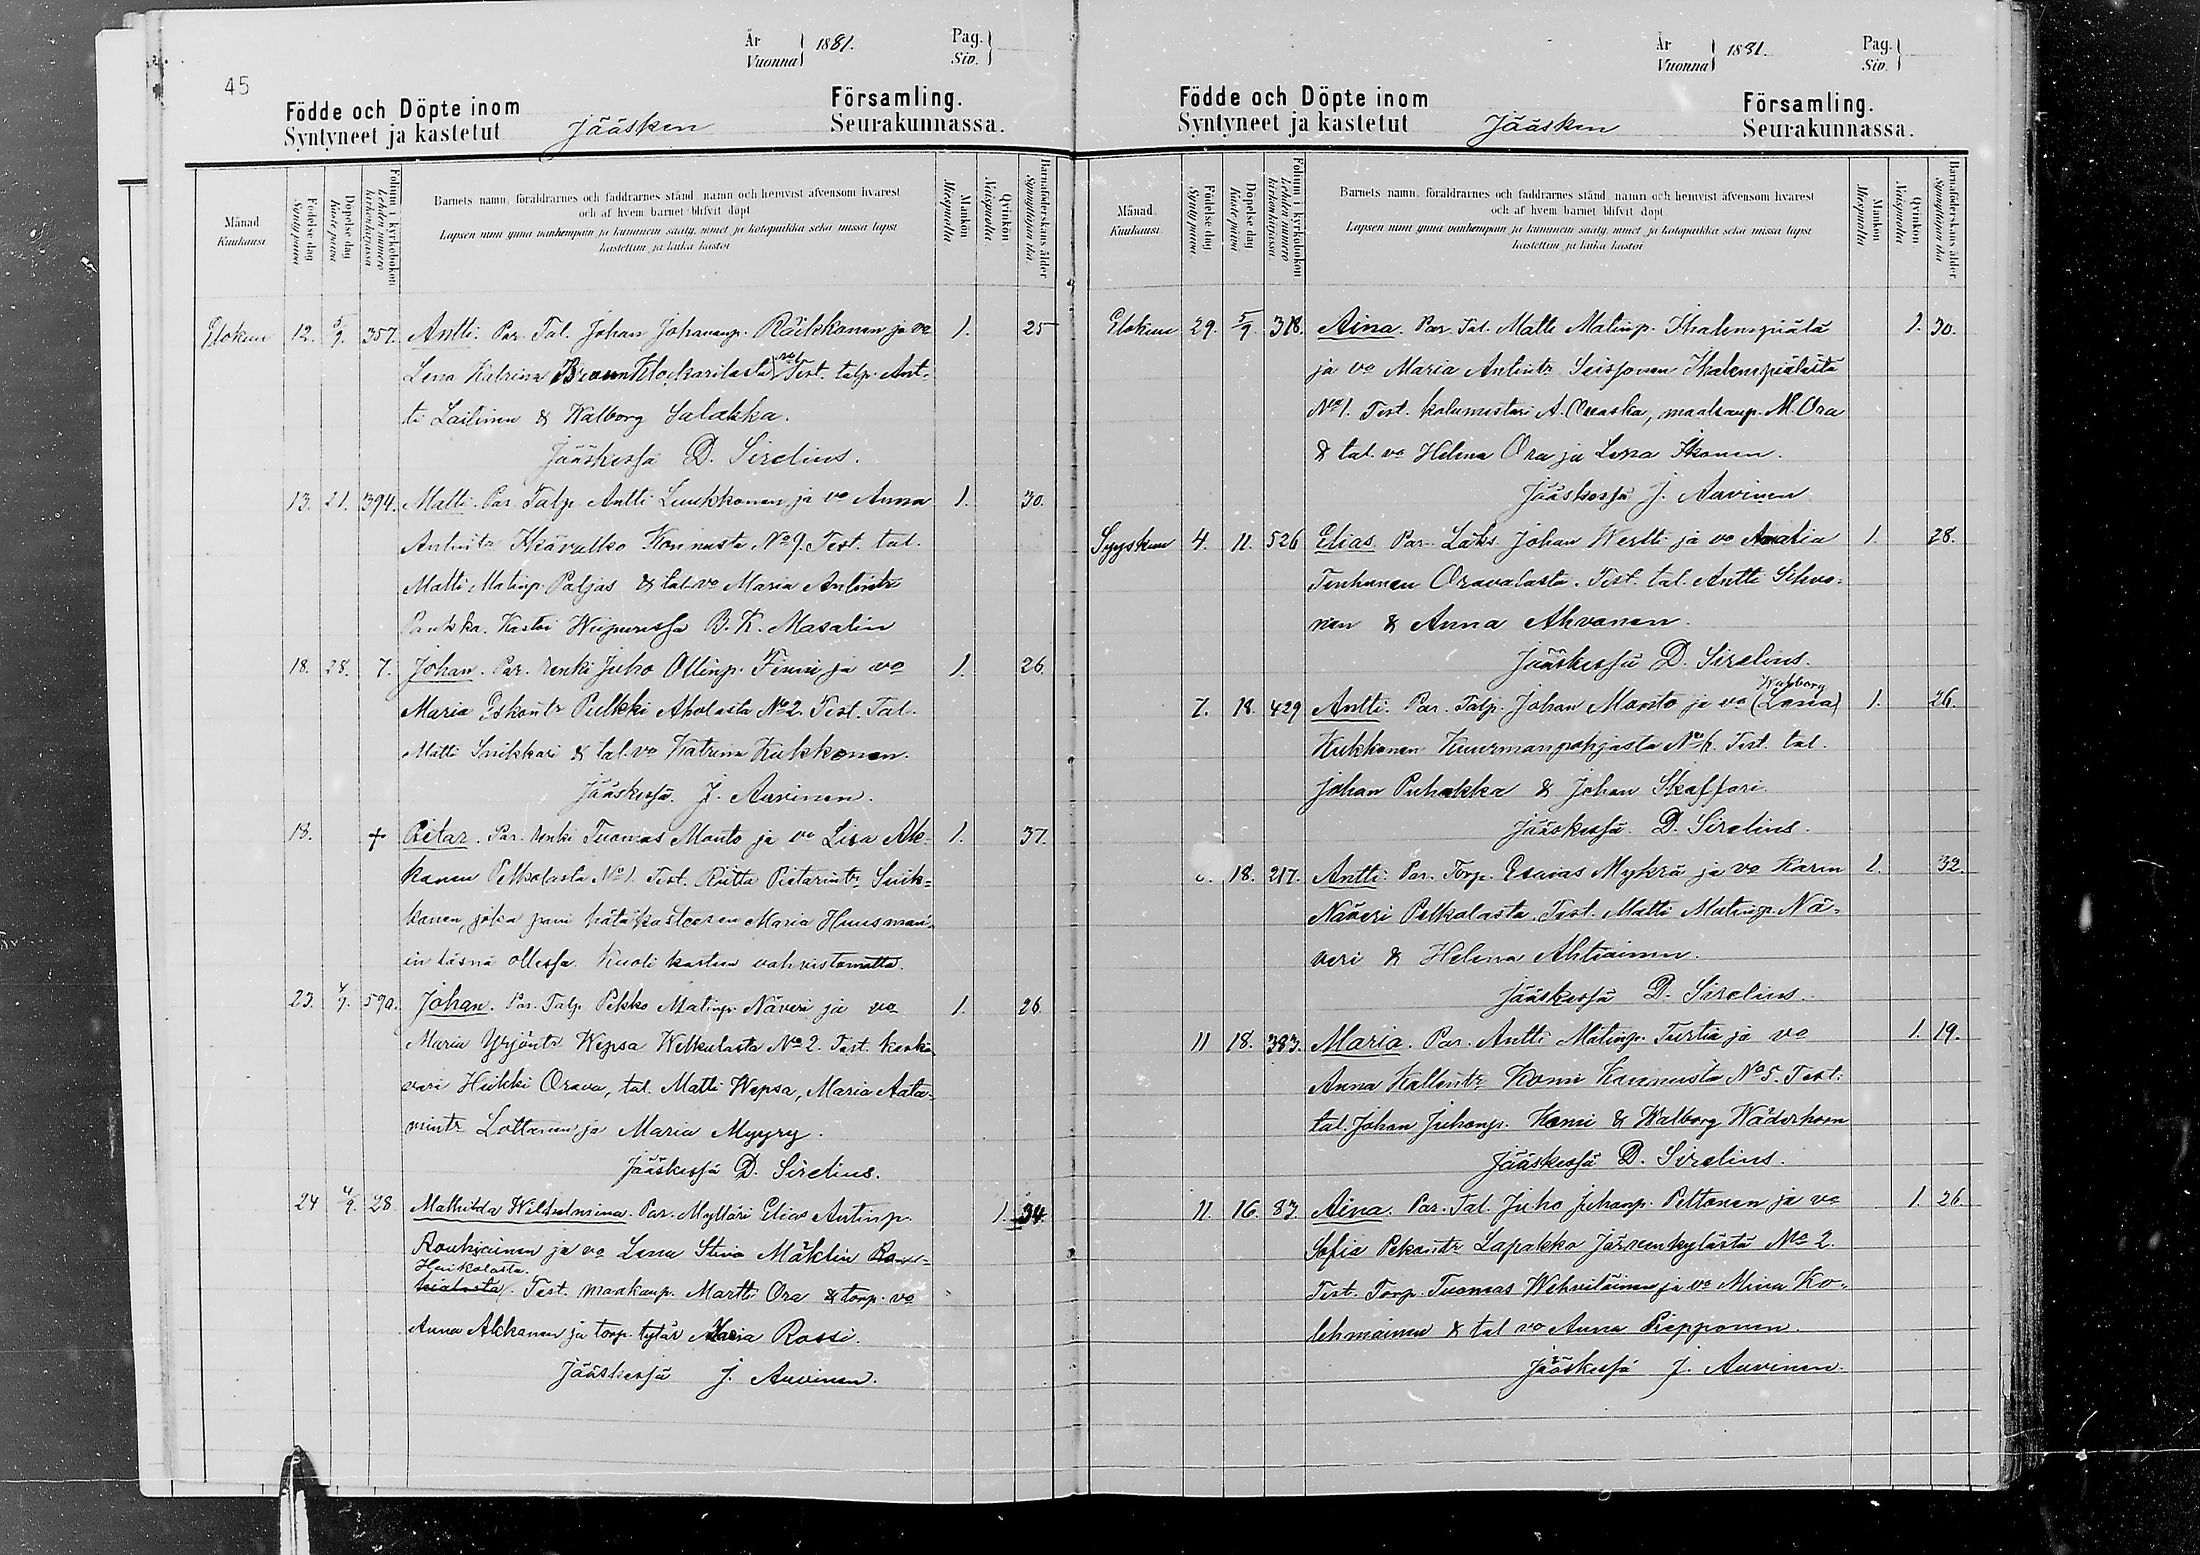 45
År Vuonna } 1881.
Pag. Siv. }
Födde och Döpte inom
Syntyneet ja kastetut
Jääsken
Församling.
Seurakunnassa.
Månad
Kuukausi
Födelse dag
Syntypäivä
Döpelse dag
Kaste päivä
Folium i kyrkoboken
Lehden numero kirkonkirjassa
Barnets namn, föräldrarnes och faddrarnes stånd, namn och hemvist äfvensom hvarest
och af hvem barnet blifvit döpt
Lapsen nimi ynnä vanhempain ja kummein sääty, nimet ja kotopaikka sekä missä lapsi
kastettiin ja kuka kastoi
Mankön
Miespuolta
Qvinkön
Naispuolta
Barnaföderskans ålder
Synnyttäjän ikä
Elokuu 12. 5/9. 357. Antti. Par. Tal. Johan Johananp. Räikkönen ja vo 1. 25
Lena Katrina Braun Klockarilasta Test. talp. Ant-
ti Lailinen & Walborg Salakka.
Jääskessä D. Sirelius.
13. 21. 394. Matti. Par. Talp. Antti Luukkonen ja vo Anna 1. 30.
Antintr Ikävalko Konnusta No 9. Test. tal.
Matti Matinp. Paljas & tal. vo Maria Antintr
Paukka. Kastoi Wiipurissa B. K. Masalin
18. 28. 7. Johan. Par. renki Juho Ollinp. Finni ja vo 1. 26.
Maria Eskontr Pulkki Aholasta No 2. Test. Tal.
Matti Snikkari & tal. vo Katrina Kukkonen.
Jääskessä. J. Auvinen.
18. † Pietar. Par. renki Tuomas Manto ja vo Lisa Ak- 1. 37.
kanen Pelkolasta No 1. Test. Riitta Pietarintr Snik-
kanen, joka pani hätäkasteesen Maria Huusman-
in läsnä ollessa. Kuoli kasteen vahvistamatta.
23. 4/9. 590. Johan. Par. Talp. Pekko Matinp. Näveri ja vo 1. 26.
Maria Yrjöntr Wepsa Welkulasta No 2. Test. keski-
vari Heikki Orava, tal. Matti Wepsa, Maria Aata-
mintr Lottanen ja Maria Myyry.
Jääskessä D. Sirelius.
24 4/9. 28. Mathilda Wilhelmina. Par. Mylläri Elias Antinp. 1. 34.
Rouhiainen ja vo Lena Stina Mäklin
Haikolasta.
Test. maakaup. Martti Ora & torp. vo
Anna Akkanen ja torp. tytär Maria Rossi.
Jääskessä J. Auvinen.
År Vuonna } 1881.
Pag. Siv. }
Födde och Döpte inom
Syntyneet ja kastetut
Jääsken
Församling.
Seurakunnassa.
Månad
Kuukausi
Födelse dag
Syntypäivä
Döpelse dag
Kaste päivä
Folium i kyrkoboken
Lehden numero kirkonkirjassa
Barnets namn, föräldrarnes och faddrarnes stånd, namn och hemvist äfvensom hvarest
och af hvem barnet blifvit döpt
Lapsen nimi ynnä vanhempain ja kummein sääty, nimet ja kotopaikka sekä missä lapsi
kastettiin ja kuka kastoi
Mankön
Miespuolta
Qvinkön
Naispuolta
Barnaföderskans ålder
Synnyttäjän ikä
Elokuu 29. 5/9. 318. Aina. Par. Tal. Matti Matinp. 1. 30.
ja vo Maria Antintr Seisjonen
No 1. Test. kalamestari A. Ouaska, maakaup. M. Ora
& tal. vo Helena Ora ja Lena Ikonen.
Jääskessä J. Auvinen
Syyskuu 4. 11. 526 Elias. Par. Läks. Johan Wertti ja vo Amalia 1. 28.
Tenhunen Oravalasta. Test. tal. Antti Sihvo-
nen & Anna Ahvonen.
Jääskessä D. Sirelius.
Walborg
7. 18. 429 Antti. Par. Talp. Johan Manto ja vo (Lena) 1. 26.
Kukkonen Kuurmanpohjasta No 6. Test. tal.
Johan Puhakka & Johan Skaffari.
Jääskessä. D. Sirelius.
18. 217. Antti. Par. Torp. Esaias Mykrä ja vo Karin 1. 32.
Näveri Pelkolasta. Test. Matti Matinp. Nä-
veri & Helena Ahtiainen.
Jääskessä D. Sirelius.
11 18. 383. Maria. Par. Antti Matinp. Turtia ja vo 1. 19.
Anna Kallentr Komi Kaunusta No 5. Test.
tal. Johan Juhanp. Komi & Walborg Wäderhorn
Jääskessä D. Sirelius.
11. 16. 83. Aina. Par. Tal. Juho Juhanp. Peltonen ja vo 1. 26.
Sofia Pekontr Lapakko Järvenkylästä No 2.
Test. Torp. Tuomas Wehviläinen ja vo Miina Ko-
lehmainen & tal vo Anna Prepponen.
Jääskessä J. Auvinen.